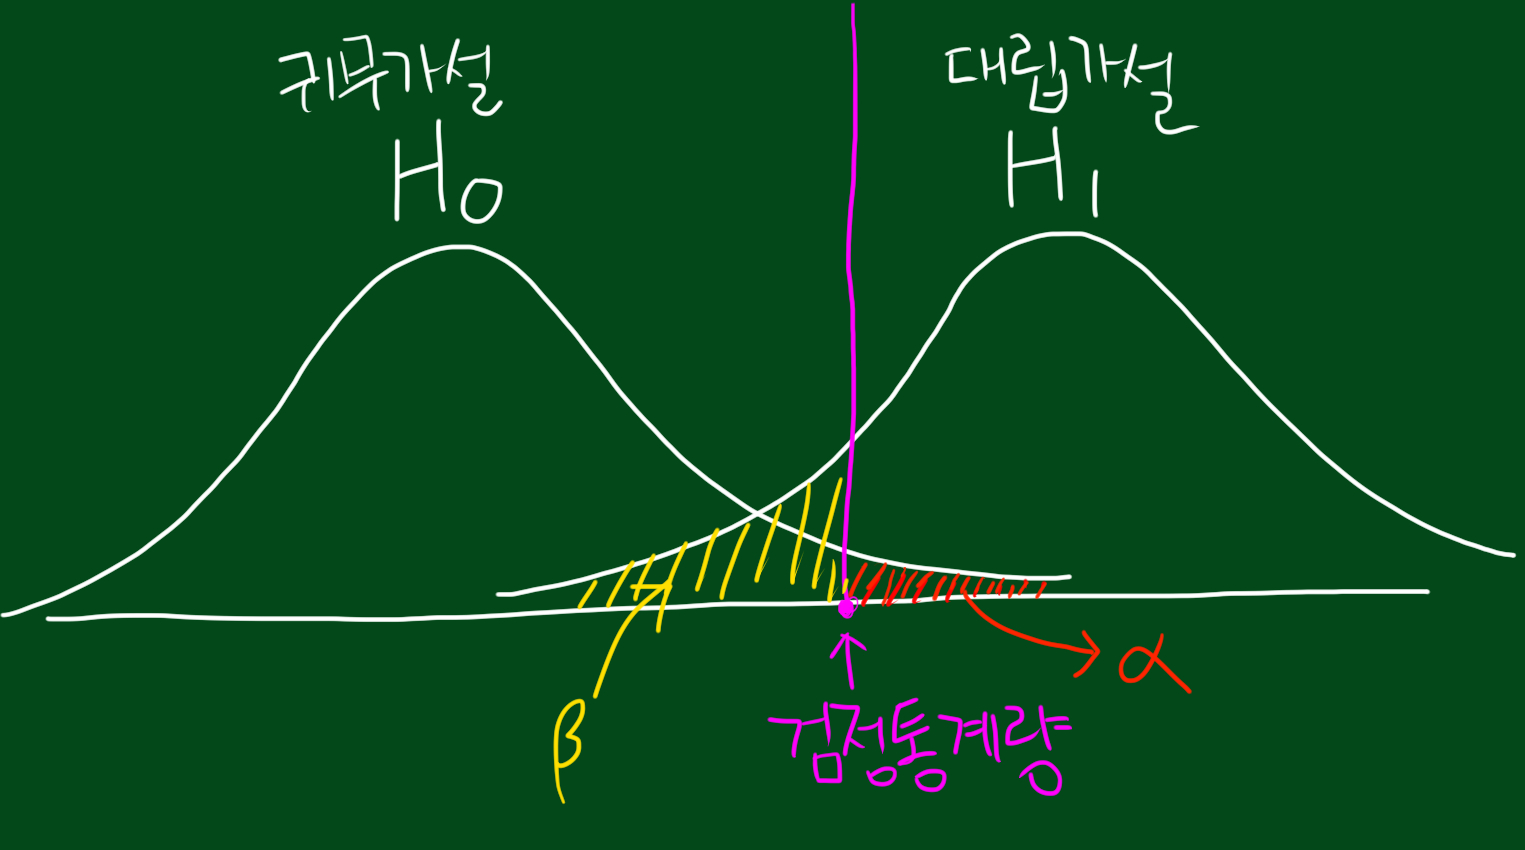 귀무가설
H₀
대립가설
H₁
α
β
검정통계량